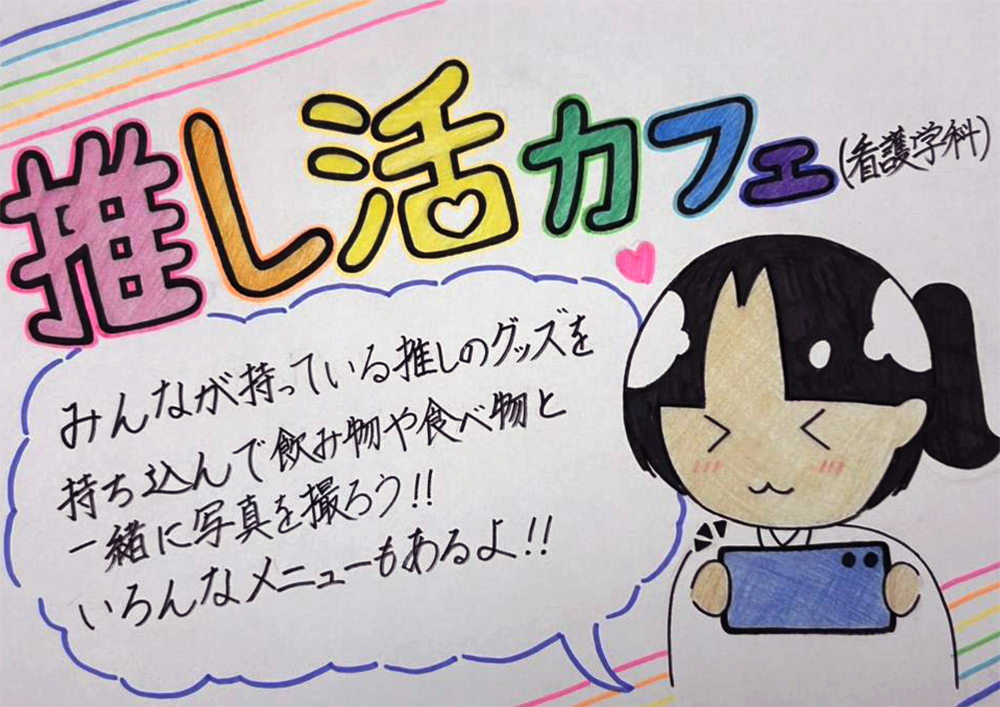 推し活カフェ(看護学科)
みんなが持っている推しのグッズを
持ち込んで飲み物や食べ物と
一緒に写真を撮ろう!!
いろんなメニューもあるよ!!